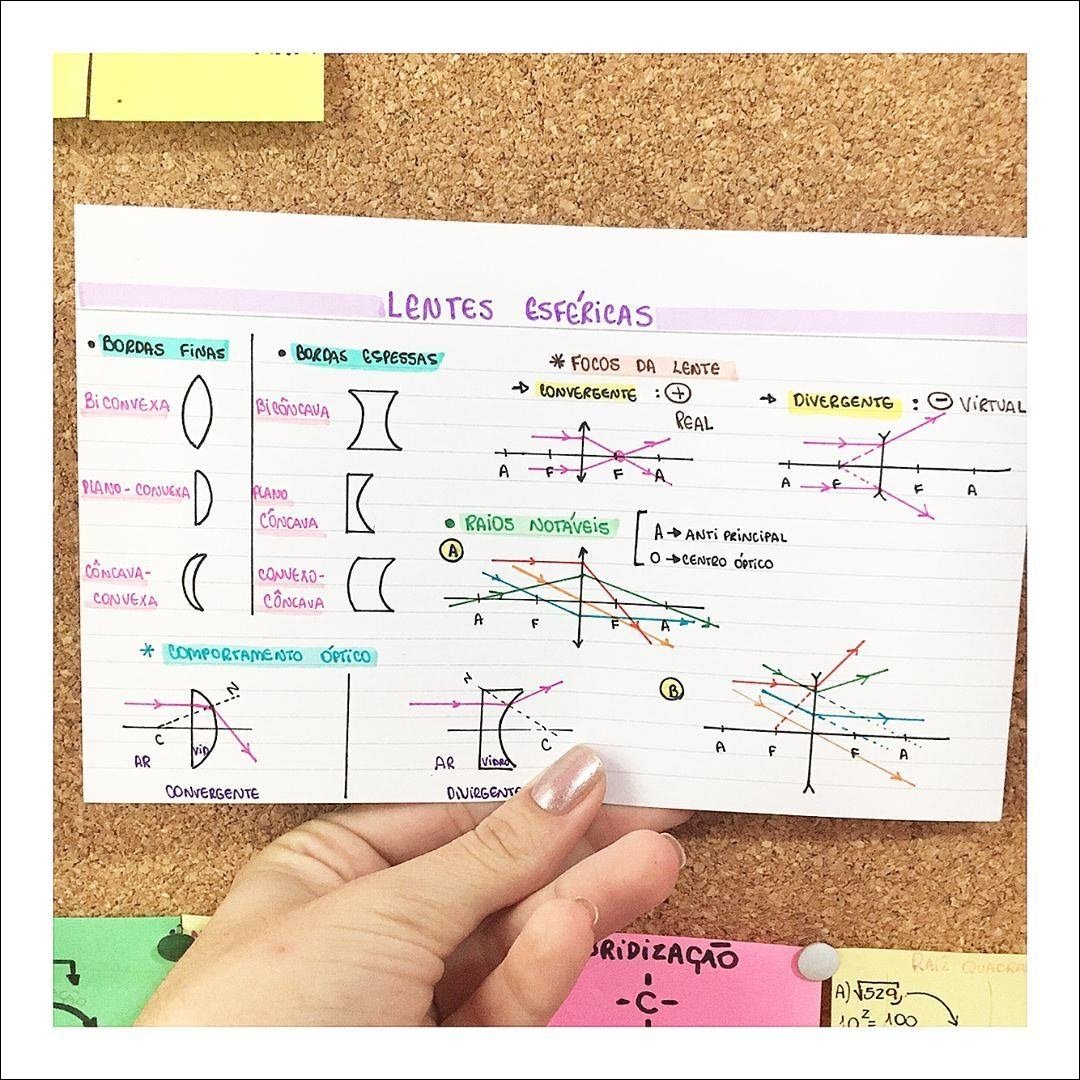 LENTES ESFÉRICAS
• BORDAS FINAS
BICONVEXA
PLANO-CONVEXA
CÔNCAVA-
CONVEXA
• BORDAS ESPESSAS
BICÔNCAVA
PLANO
CÔNCAVA
CONVEXO-
CÔNCAVA
* FOCOS DA LENTE
→ CONVERGENTE : +
REAL
A F F A
→ DIVERGENTE : - VIRTUAL
A F F A
• RAIOS NOTÁVEIS
A → ANTI PRINCIPAL
O → CENTRO ÓPTICO
A
A F F A
B
A F F A
* COMPORTAMENTO ÓPTICO
N
C
VID
AR
CONVERGENTE
N
C
AR
VIDRO
DIVIRGENTE
RIDIZAÇÃO
-C-
RAIZ QUADRA
A) √529
10²= 100